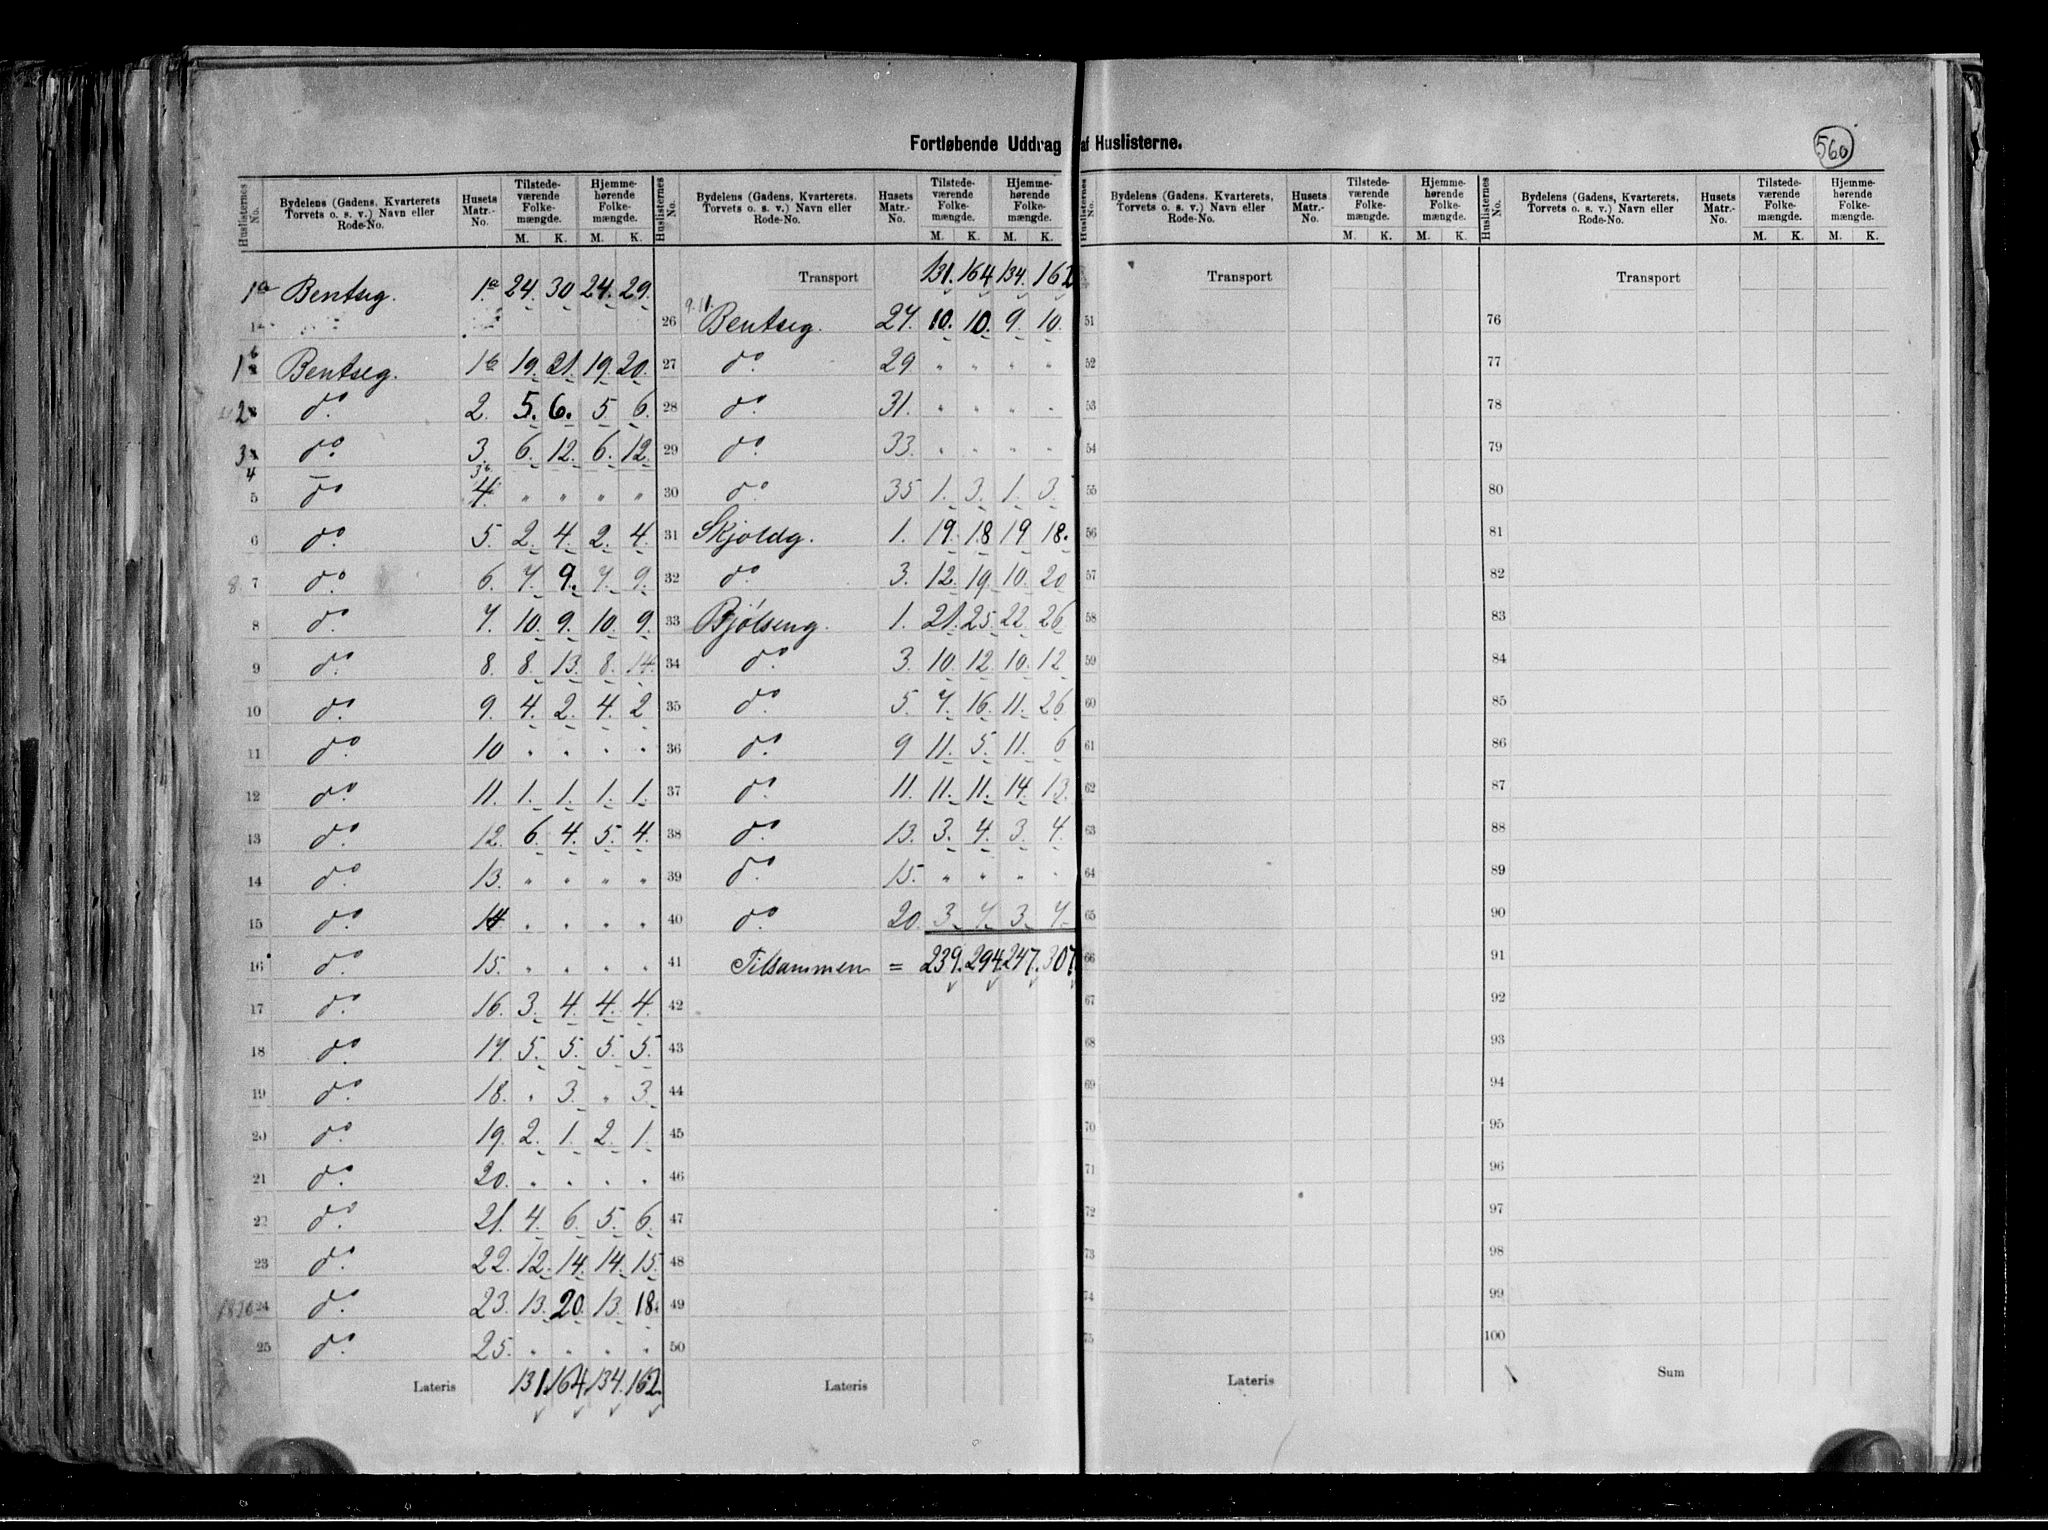 Fortløbende Uddrag af Huslisterne.
560
Huslisternes No. Bydelens (Gadens, Kvarterets, Torvets o. s. v.) Navn eller Rode-No. Husets Matr.-No. Tilstedeværende Folkemængde. M. K. Hjemmehørende Folkemængde. M. K.
1a Bentseg. 1a 24. 30 24. 29.
1b Bentseg. 1b 19. 21. 19. 20.
2 do 2. 5. 6. 5 6.
3 do 3. 6. 12. 6. 12.
4
5 do 3b 4. " " " "
6 do. 5. 2. 4. 2. 4.
8. 7 do. 6. 7. 9. 7. 9.
8 do. 7. 10. 9. 10. 9.
9 do. 8. 8. 13. 8. 14.
10 do. 9. 4. 2. 4. 2
11 do. 10 " " " "
12 do. 11. 1. 1. 1. 1.
13 do. 12. 6. 4. 5. 4.
14 do. 13. " " " "
15 do. 14 " " " "
16 do. 15. " " " "
17 do. 16. 3. 4. 4. 4.
18 do. 17. 5. 5. 5. 5.
19 do. 18. " 3. " 3.
20 do. 19. 2. 1. 2. 1.
21 do. 20. " " " "
22 do. 21. 4. 6. 5. 6.
23 do. 22. 12. 14. 14. 15.
24 do. 23. 13. 20. 13. 18.
25 do. 25. " " " "
Lateris 131. 164. 134. 162.
Huslisternes No. Bydelens (Gadens, Kvarterets, Torvets o. s. v.) Navn eller Rode-No. Husets Matr.-No. Tilstedeværende Folkemængde. M. K. Hjemmehørende Folkemængde. M. K.
Transport 131. 164. 134. 162
26 Bentseg. 27. 10. 10. 9. 10.
27 do. 29 " " " "
28 do. 31. " " " "
29 do. 33. " " " "
30 do. 35 1. 3. 1. 3.
31 Skjoldg. 1. 19. 18 19 18.
32 do. 3. 12. 19. 10. 20
33 Bjølseng. 1. 21. 25. 22. 26
34 do. 3. 10. 12. 10. 12
35 do. 5. 7. 16. 11. 26
36 do. 9 11. 5. 11. 6
37 do. 11. 11. 11. 14. 13.
38 do. 13. 3. 4. 3. 4.
39 do. 15. " " " "
40 do. 20. 3. 7. 3. 7.
41 Tilsammen = 239. 294. 247. 307.
42
43
44
45
46
47
48
49
50
Lateris
Huslisternes No. Bydelens (Gadens, Kvarterets, Torvets o. s. v.) Navn eller Rode-No. Husets Matr.-No. Tilstedeværende Folkemængde. M. K. Hjemmehørende Folkemængde. M. K.
Transport
51
52
53
54
55
56
57
58
59
60
61
62
63
64
65
66
67
68
69
70
71
72
73
74
75
Lateris
Huslisternes No. Bydelens (Gadens, Kvarterets, Torvets o. s. v.) Navn eller Rode-No. Husets Matr.-No. Tilstedeværende Folkemængde. M. K. Hjemmehørende Folkemængde. M. K.
Transport
76
77
78
79
80
81
82
83
84
85
86
87
88
89
90
91
92
93
94
95
96
97
98
99
100
Sum